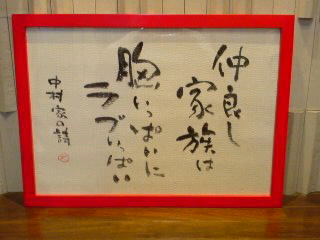 仲良し
家族は
胸いっぱいに
ラブいっぱい
中井家の詩